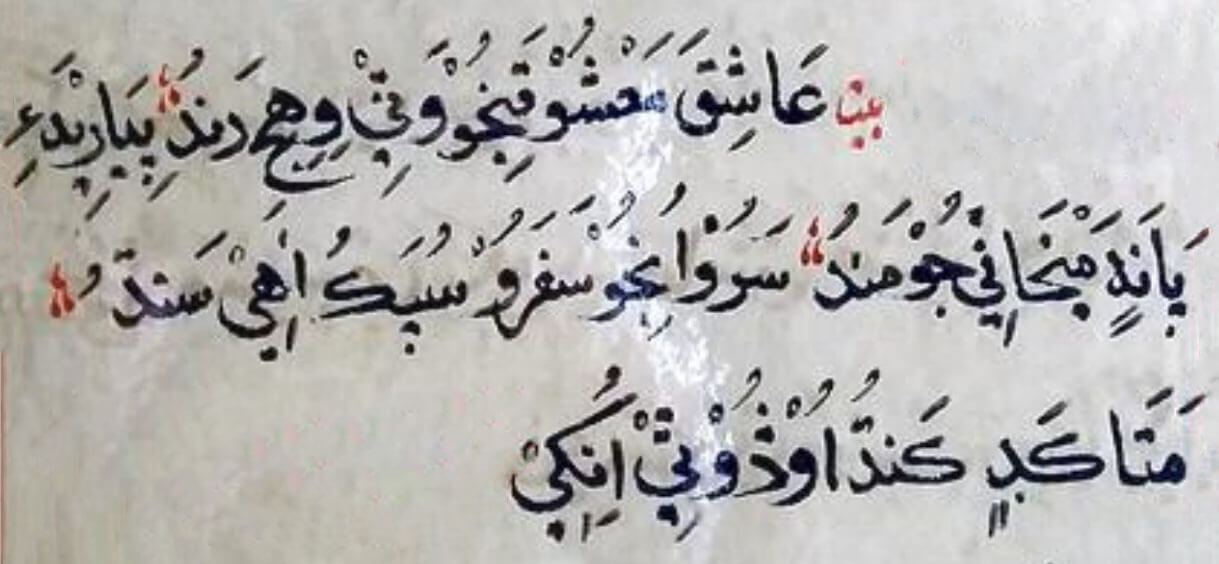 بيت عَاشِقَ مَعْشُوْقَنِجُوْ وَتِيْ وِهِجَ دَندُ پِيَارِيْدَءِ
پَانَهٍ مَيْخَانِيْ جُوْ مَندُ سَرُوْانِجُوْ سَفَرُوْ سُپَڪُ اَهِيْ سَندُ
مَتَا كَڍٍ كَندُ اوْڎُوْ تِيْ اُنِكِيْ